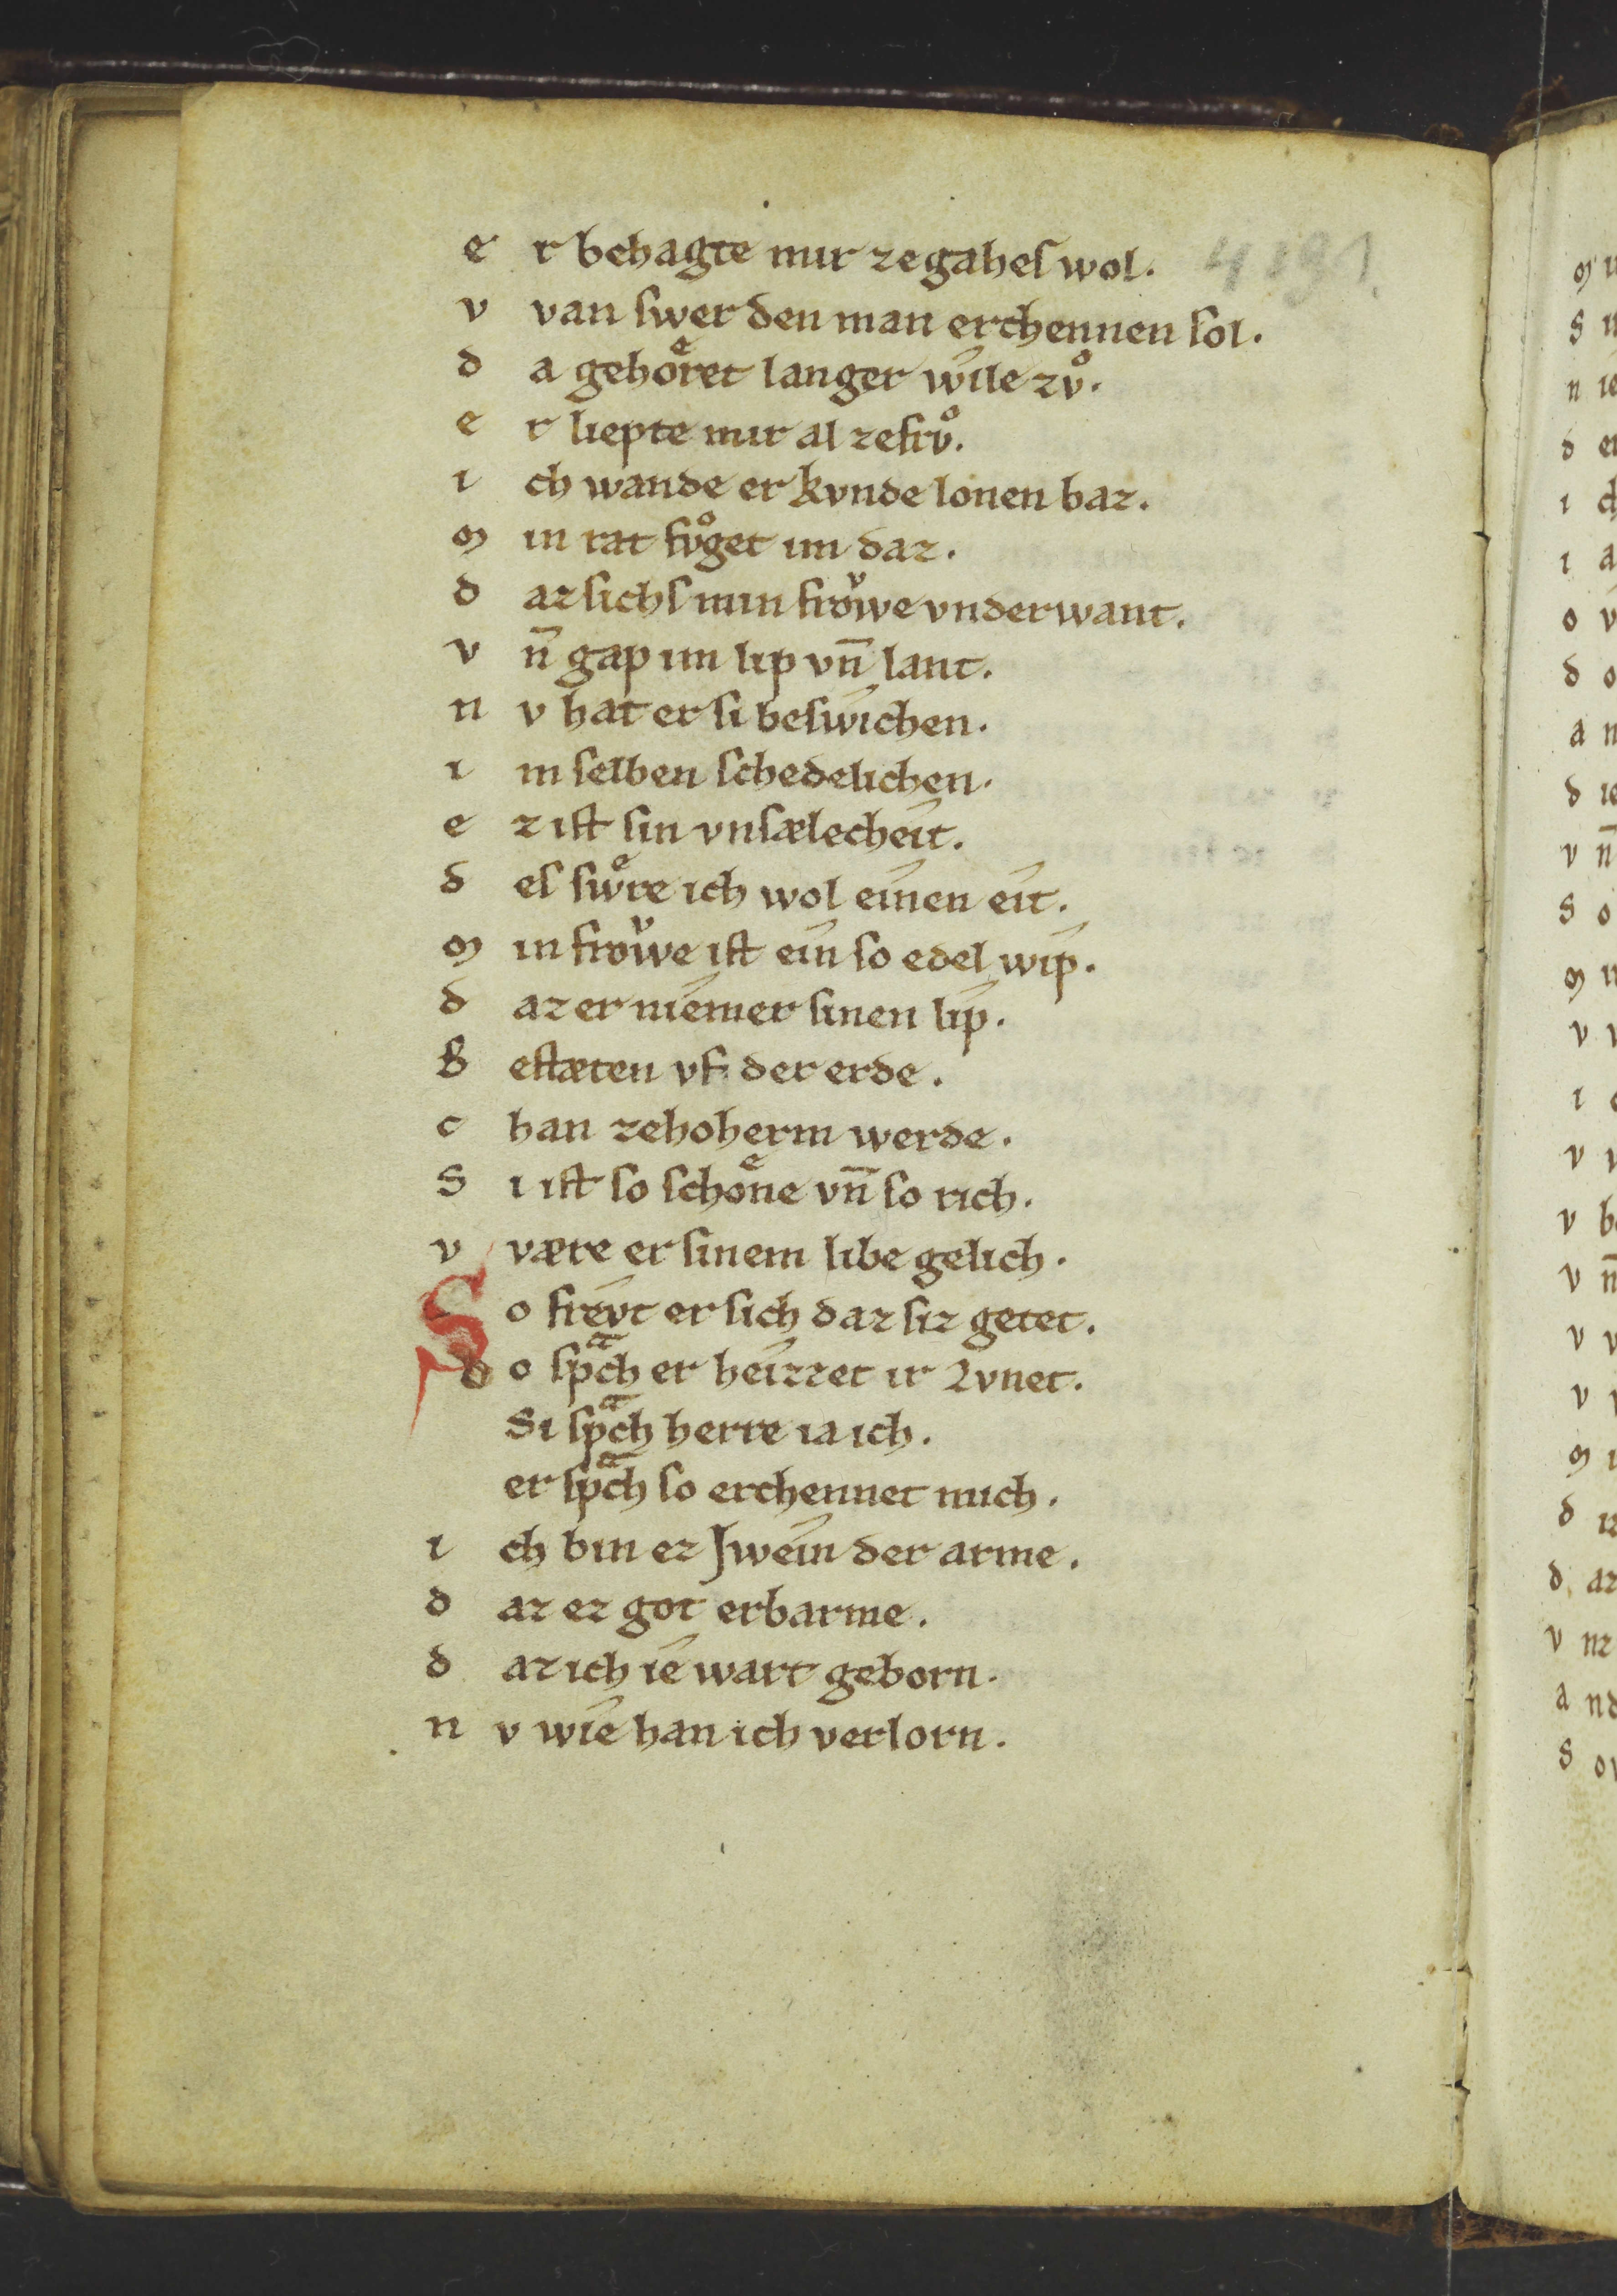 e r behagte mir ze gahes wol. 4191
v van swer den man erchennen sol.
d a gehoͤret langer wile zvͦ.
e r liepte mir al ze frvͦ.
i ch wande er kvnde lonen baz.
m in rat fvͦget im daz.
d az sichs min froͮwe vnderwant.
v n̄ gap im lip vn̄ lant.
n v hat er si beswichen.
i m selben schedelichen.
e z ist sin vnsælecheit.
d es swͤre ich wol einen eit.
m in froͮwe ist ein so edel wip.
d az er niemer sinen lip.
g estæten vf der erde.
c han ze hoherm werde.
s i ist so schoͤne vn̄ so rich.
v være er sinem libe gelich.
S o frevt er sich daz siz getet.
d o spͣch er heizzet ir Lvnet.
Si spͣch herre ia ich.
er spͣch so erchennet mich.
i ch bin ez Jwein der arme.
d az ez got erbarme.
d az ich ie wart geborn.
n v wie han ich verlorn.